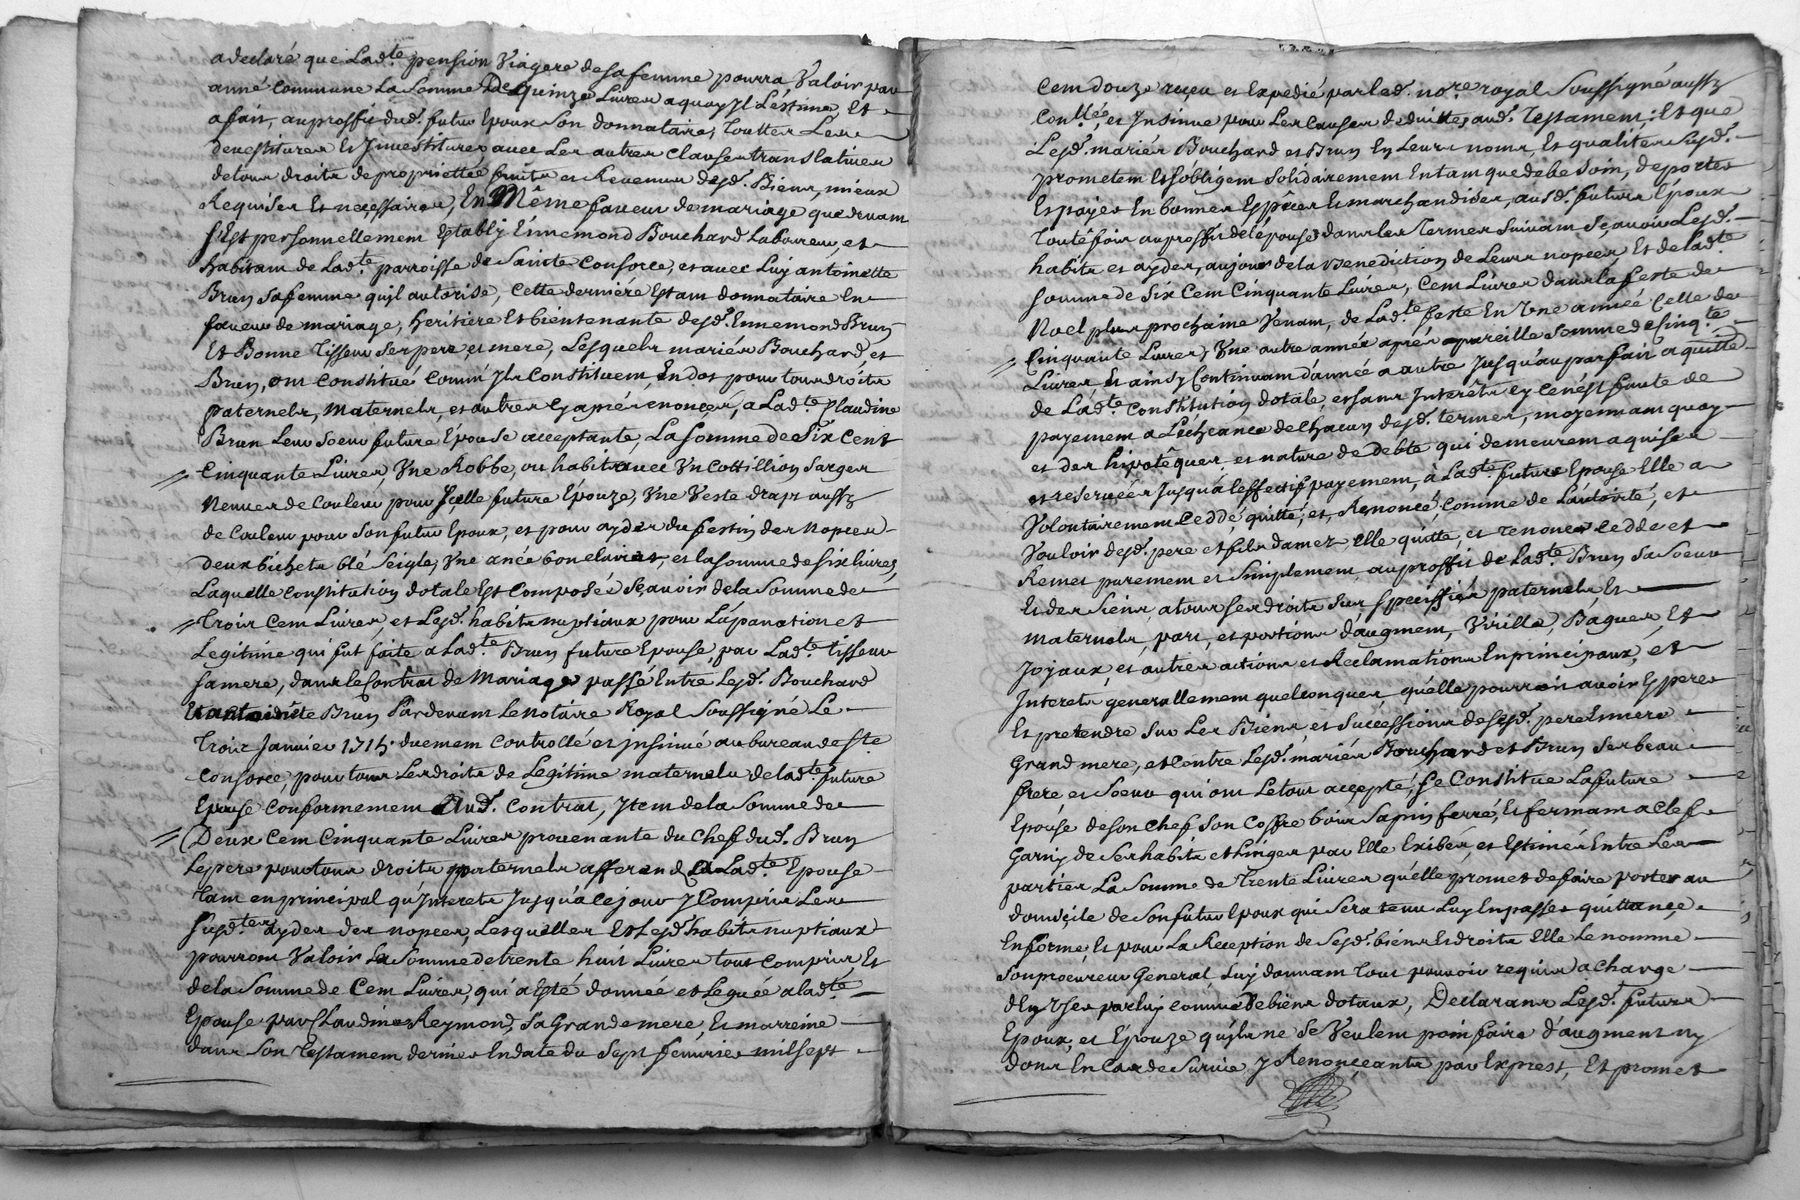 a declaré que Lad.te pension Viagere de sa femme pourra Valoir par
anné commune La Somme De quinze Livres a quoy Il L'estime Et
a fait, au proffit dud. futur Epoux Son donnataire, Toutter Les
devestitures Et Investitures avec Les autres clauses translatives
de tous droits de proprietté fruits et Revenus desd. Biens, mieux
Requises Et necessaires, En Même faveur de mariage que devant
s'Est personnellement Establÿ Ennemond Bouchard Laboureur, et
habitant de Lad.te parroisse de Sainte Consorce, et avec Luy antoinette
Brun sa femme qu'il autorise, cette derniere Estant donnataire En
faveur de mariage, heritiere Et bientenante desd. Ennemond Brun
Et Bonne Tisseur ses pere et mere, Lesquels mariés Bouchard, et
Brun, ont constitué comm' Ils Constituent, En dot pour tous droits
paternels, maternels, et autres Cy après enoncés, a Lad.te Claudine
Brun Leur Soeur future Epouse acceptante, La Somme de Six Cent
Cinquante Livres, Une Robbe, ou habit avec Un Cottillion Sarges
Neuves de Couleur pour Icelle future Epouze, Une Veste draps aussy
de Couleur pour Son futur Epoux, et pour ayder du festin des Nopces
deux bichets blé Seigle, Une anée bon clairet, et la Somme de six livres,
Laquelle constitution dotale Est Composée Sçavoir de la Somme de
Trois Cent Livres, et Lesd. habits nuptiaux pour L'apanation et
Legitime qui fut faite a Lad.te Brun future Epouse, par Lad.te Tisseur
sa mere, dans le Contrat de Mariage passé Entre Lesd. Bouchard
Et antoinette Brun Pardevant Le Notaire Royal Soussigné Le
Trois Janvier 1715. duement Controllé et insinué au bureau de Ste
Consorce, pour tous Les droits de Legitime maternels de ladte future
Epouse Conformement Aud. Contrat, Item de la Somme de
Deux Cent Cinquante Livres provenante du Chef dud. Brun
Le pere pour tous droits paternels afferand a Lad.te Epouse
Tant en principal qu'Interets Jusqu'à ce jour Y Compris Les
susd.tes ayder des nopces, Lesquelles Et Lesd. habits nuptiaux
pourront Valoir La Somme de trente huit Livres tout compris Et
de la Somme de Cent Livres, qui a Esté donnée et Leguée a lad.te
Epouse par Claudine Reymond, Sa Grand mere, Et marreine
dans Son Testament dernier En date du Sept fevrier mil Sept
Cent douze reçu et Expedié par led. no.re royal Soussigné aussy
Con.llé, et Insinué pour Les Causes deduittes aud. Testament: Et que
Lesd. mariés Bouchard et Brun En Leurs noms, Et qualités Susd.
prometent Et s'obligent Solidairement En tant que de besoin, de porter
Et payer En bonnes Espêces Et marchandises, ausd. futurs Epoux
Toutefois au proffit de l'epouse dans Les Termes Suivants Sçavoir Lesd.
habits et ayder, au jour de la Benediction de Leurs nopces, Et de lad.te
somme de Six Cent Cinquante Livres, Cent Livres dans La feste de
Noel plus prochaine Venant, de Lad.te feste En Une année Celle de
Cinquante Livres, Une autre année après a pareille Somme de Cinq.te
Livres Et ainsy Continuant d'année a autre Jusqu'au parfait aquitté
de Lad.te Constitution dotale, et sans Interêts Sy Ce n'est faute de
payement a L'echeance de Chacun desd. termes, moyennant quoy
et des hipotêques, et nature de debte qui demeurent aquises
et reservées Jusqu'à l'effectif payement, à Lad.te future Epouse Elle a
Volontairement Ceddé, quitté, et Renoncé, Comme de L'autorité, et
Vouloir desd. pere et fils damez, Elle quitte, et renonce cedde et
Remet purement et Simplement au proffit de Lad.te Brun Sa Soeur
Et des Siens, a tous ses droits Sus specifiés paternels Et
maternels, part, et portions d'augment, Virille, Bagues, Et
Joyaux, et autres actions et Reclamations En principaux, et
Interets generallement quelconques qu'elle pourroit avoir Esperer
Et pretendre Sur Les Biens, et Successions desesd. pere Et mere
Grand mere, et Contre Lesd. mariés Bouchard et Brun Ses beau
frere et Soeur qui ont Le tout accepté, Se Constitue La future
Epouse de son Chef Son Coffre bois Sapin ferré, Et fermant a Clef
Garny de Ses habits et Linges par Elle Exibés, et Estimés Entre Les
parties La Somme de Trente Livres qu'elle promet de faire porter au
domicile de Son futur Epoux qui Sera tenu Luy En passer quittance
En forme, Et pour La Reception de Sesd. biens Et droits Elle Le nomme
Son procureur General, Luy donnant Tout pouvoir requis a charge
d'En User par luy comme De biens dotaux, Declarans Lesd. futurs
Epoux, et Epouze qu'ils ne Se Veulent point faire d'augment ny
dons En Cas de Survie, Y Renonçeants par Exprest, Et promet